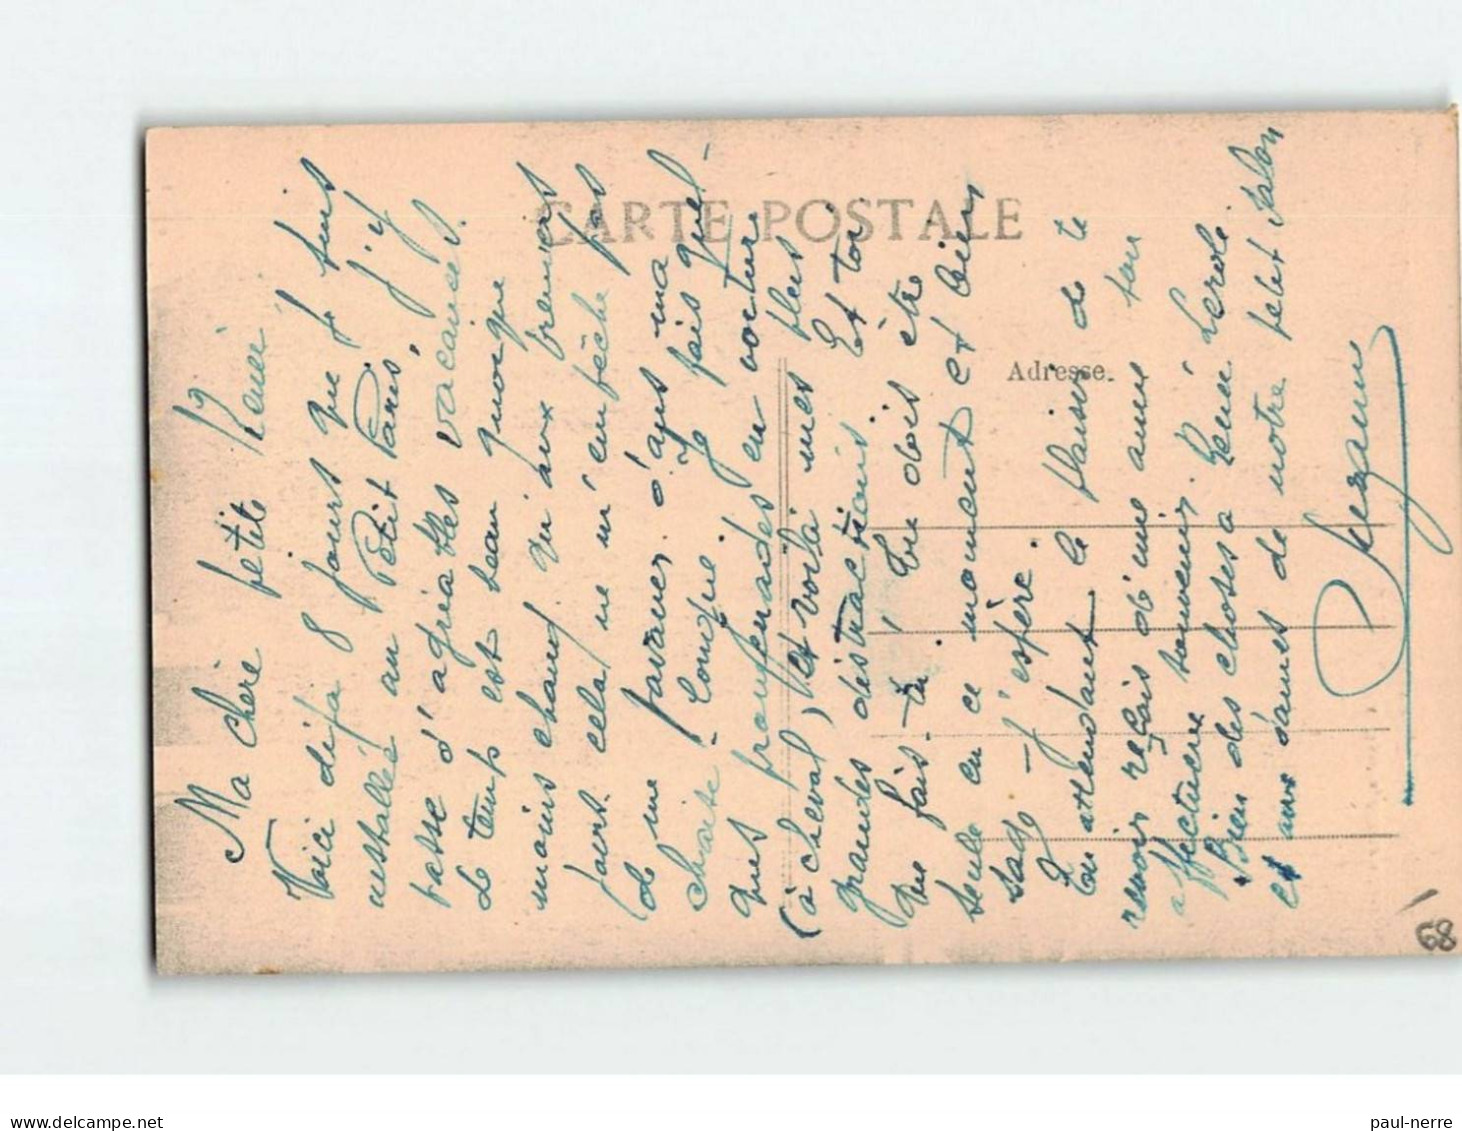 CARTE POSTALE
Adresse.
Ma chère petite Renée,
Voici déjà 8 jours que je suis
installée au Petit Paris, j'y
passe d'agréables vacances.
Le temps est beau quoique
moins chaud qu'aux premiers
jours. cela ne m'empêche pas
de me pavaner d'ans ma
chaise-longue. Je fais quel-
ques promenades en voiture
(à cheval) et voilà mes plus
grandes distractions. Et toi
que fais-tu. tu dois être
seule en ce moment et bien
sage j'espère.
En attendant le plaisir de te
revoir reçois d'une amie son
affectueux souvenir.
Bien des choses a Renée Lerole
et aux dames de notre petit salon
Suzanne
68
paul-nerre